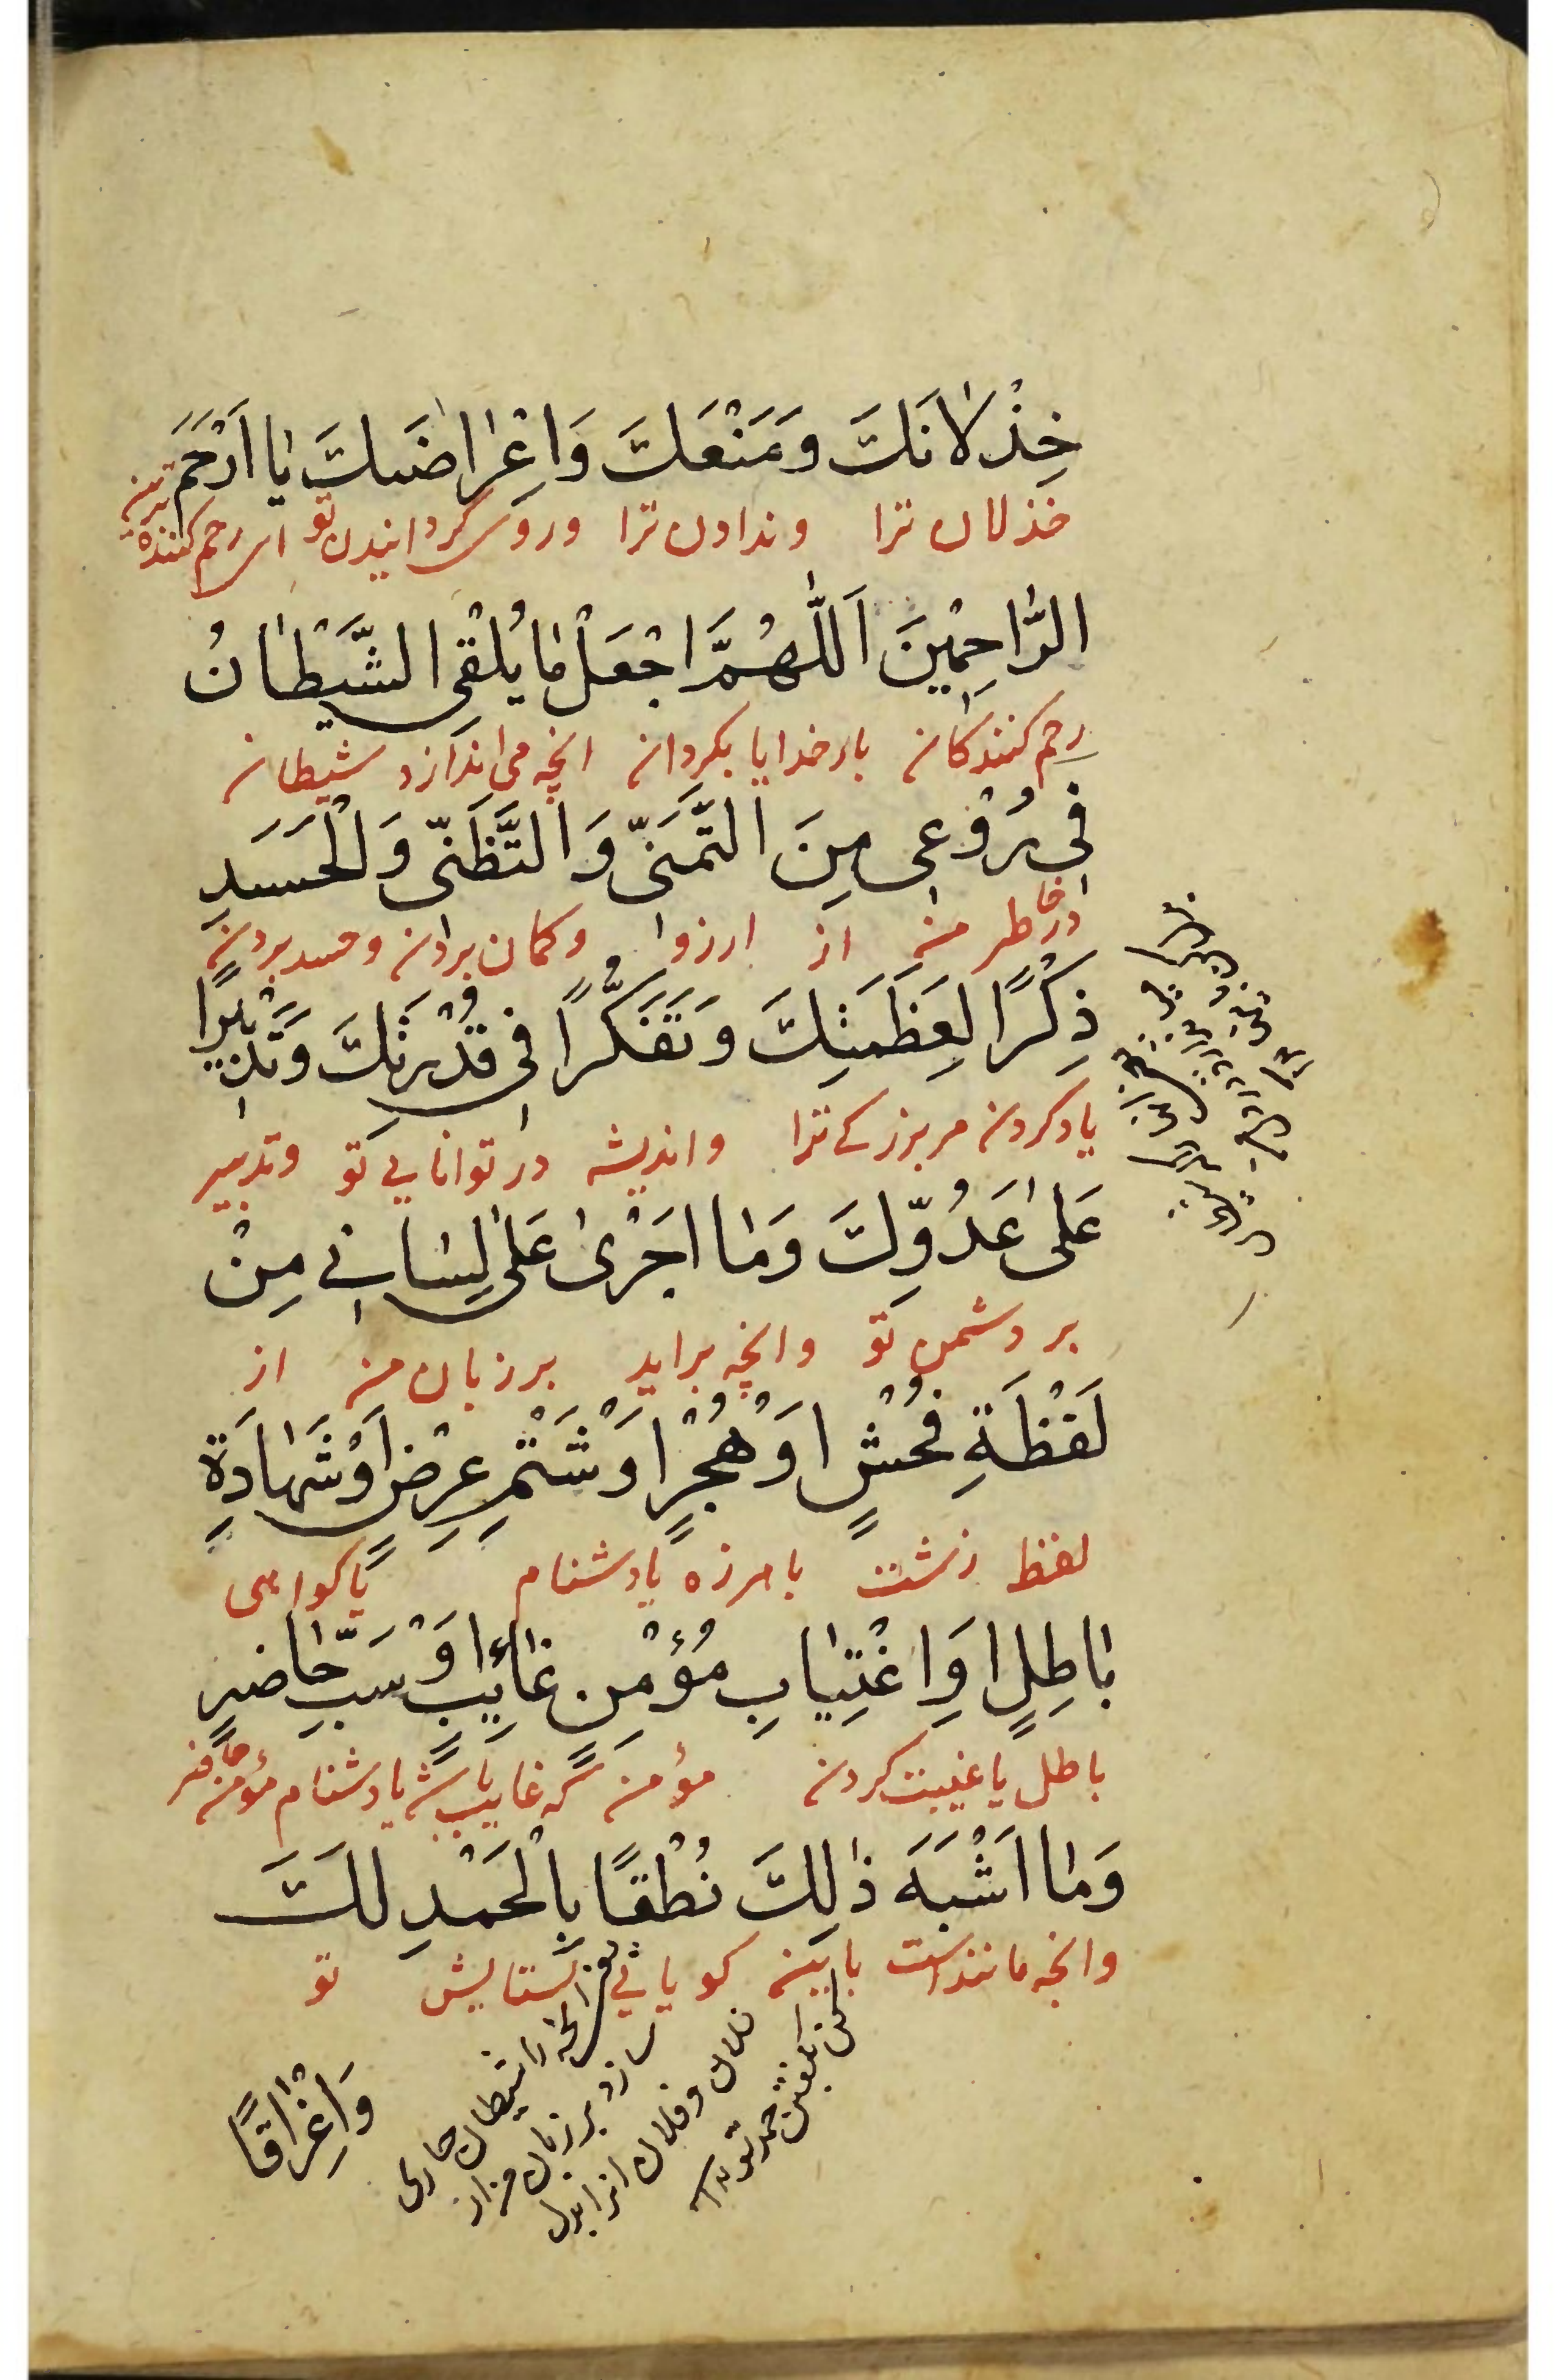 خِذْلَانَكَ وَمَنْعَكَ وَاِعْرَاضَكَ يَا اَرْحَمَ
خذلان ترا وندادن ترا وروی گردانیدن تو ای رحم کننده ترین
الرَّاحِمِيْنَ اَللّٰهُمَّ اجْعَلْ مَا يُلْقِي الشَّيْطَانُ
رحم کنندکان بارخدایا بکردان انچه می اندازد شیطان
فِي رُوْعِي مِنَ التَّمَنِّي وَالتَّظَنِّي وَالْحَسَدِ
در خاطر من از ارزوا وکمان بردن وحسد بردن
ذِكْرًا لِعَظَمَتِكَ وَتَفَكُّرًا فِي قُدْرَتِكَ وَتَدْبِيْرًا
یادکردن مر بزرکی ترا واندیشه در توانایی تو وتدبیر
عَلٰى عَدُوِّكَ وَمَا اَجْرٰى عَلٰى لِسَانِي مِنْ
بر دشمن تو وانچه براید بر زبان من از
لَفْظَةِ فُحْشٍ اَوْ هُجْرٍ اَوْ شَتْمِ عِرْضٍ اَوْ شَهَادَةِ
لفظ زشت یا هرزه یا دشنام یا کواهی
بَاطِلٍ اَوِ اغْتِيَابِ مُؤْمِنٍ غَائِبٍ اَوْ سَبِّ حَاضِرٍ
باطل یا غیبت کردن مؤمن که غایب باشد یا دشنام مؤمن حاضر
وَمَا اَشْبَهَ ذٰلِكَ نُطْقًا بِالْحَمْدِ لَكَ
وانچه مانند است باین کویائی بستایش تو
وَاِغْرَاقًا
انچه را شیطان جاری
سازد بر زبان من از
فلان و فلان انرا بدل
کن بگفتن حمد تو